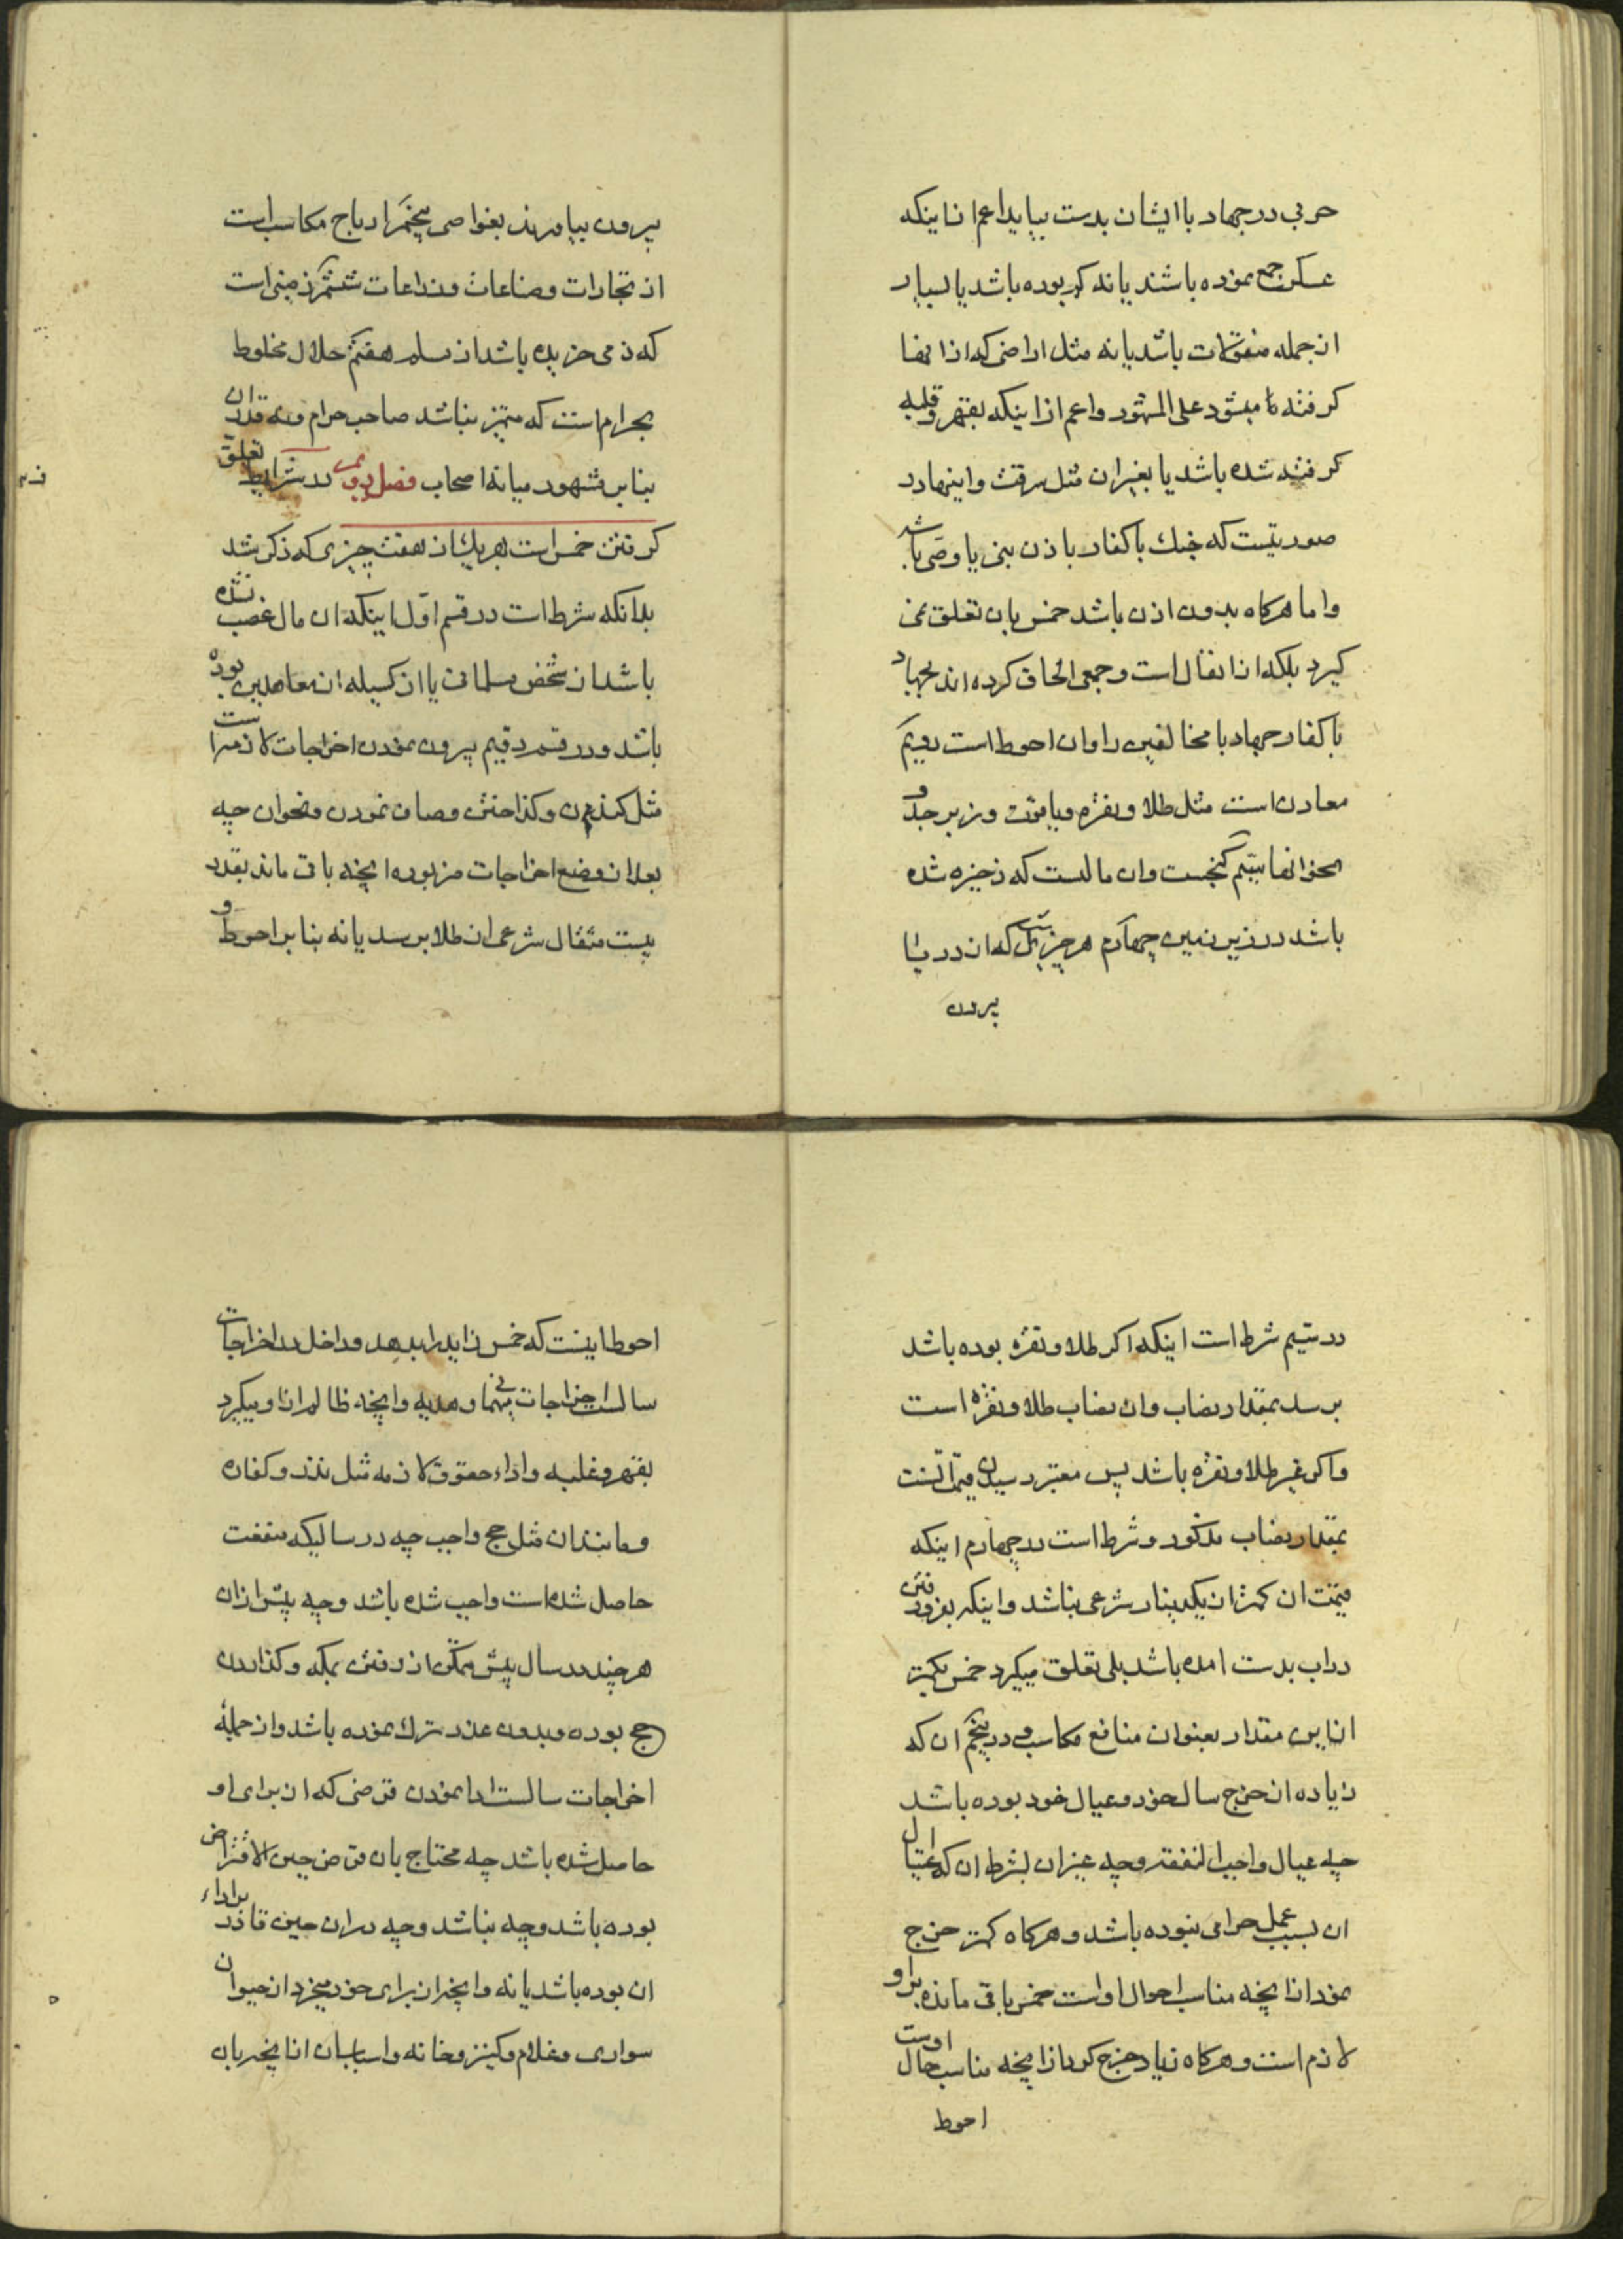 حربی در جهاد با ایشان بدست بیاید اعم از اینکه
عسکر جمع نموده باشند یا نه کر بوده باشد یا بسیار
از جمله منقولات باشد یا نه مثل اراضی که از انها
کرفته میشود علی المشهور و اعم از اینکه بقهر و غلبه
کرفته شده باشد یا بغیر ان مثل سرقت و اینها در
صورتیست که جنك با کفار باذن نبی یا وصی باشد
و اما هرکاه بدون اذن باشد خمس بان تعلق نمی
کیرد بلکه از انفال است و جمعی الحاق کرده اند بجهاد
با کفار جهاد با مخالفین را و ان احوط است دویم
معادن است مثل طلا و نقره و یاقوت و زبرجد و
نحو انها سیم کنجست و ان مالست که ذخیره شده
باشد در زیر زمین چهارم هر چیزیکه از دریا
بیرون
بیرون بیاورند بغواصی پنجم ارباح مکاسب است
از تجارات و صناعات و زراعات ششم زمینی است
که ذمی خریده باشد از مسلم هفتم حلال مخلوط
بحرام است که متمیز نباشد صاحب حرام و نه قدر ان
بنابر مشهور میانه اصحاب فصل دویم در شرایط تعلق
کرفتن خمس است بهر یك از هفت چیزی که ذکر شد
بدانکه شرط است در قسم اول اینکه ان مال غصب نشده
باشد از شخص مسلمانی یا از کسیکه از معاهدین بوده
باشد و در قسم دویم بیرون نمودن اخراجات لازمه است
مثل کندن و کداختن و صاف نمودن و نحو ان چه
بعد از وضع اخراجات مزبوره انچه باقی ماند بقدر
بیست مثقال شرعی از طلا برسد یا نه بنابر احوط و
در سیم شرط است اینکه اکر طلا و نقره بوده باشد
برسد بمقدار نصاب و ان نصاب طلا و نقره است
و اکر غیر طلا و نقره باشد پس معتبر رسیدن قیمت انست
بمقدار نصاب مذکور و شرط است در چهارم اینکه
قیمت ان کمتر از یکدینار شرعی نباشد و اینکه بفرو رفتن
در اب بدست امده باشد بلی تعلق میکیرد خمس بکمتر
از این مقدار بعنوان منافع مکاسب و در پنجم ان که
زیاده از خرج سال خود و عیال خود بوده باشد
چه عیال واجب النفقه و چه غیر ان بشرط ان که عیال
ان بسبب عمل حرامی نبوده باشد و هرکاه کمتر خرج
نمود از انچه مناسب احوال او است خمس باقی مانده بر او
لازم است و هرکاه زیاد خرج کرد از انچه مناسب حال اوست
احوط
احوط اینست که خمس زاید را بدهد و داخل در اخراجات
سالست اخراجات مهمانی و هدیه و انچه ظالم از او میکیرد
بقهر و غلبه و اداء حقوق لازمه مثل نذر و کفاره
و مانند ان مثل حج واجب چه در سالیکه منفعت
حاصل شده است واجب شده باشد و چه پیش از ان
هر چند در سال پیش متمکن از رفتن بمکه و کذاردن
حج بوده و بدون عذر ترك نموده باشد و از جمله
اخراجات سالست ادا نمودن قرضی که از برای او
حاصل شده باشد چه محتاج بان قرض حین الاقتراض
بوده باشد و چه نباشد و چه در ان حین قادر بر اداء
ان بوده باشد یا نه و انچه از برای خود میخرد از حیوان
سواری و غلام و کنیز و خانه و اسباب ان از انچه بان